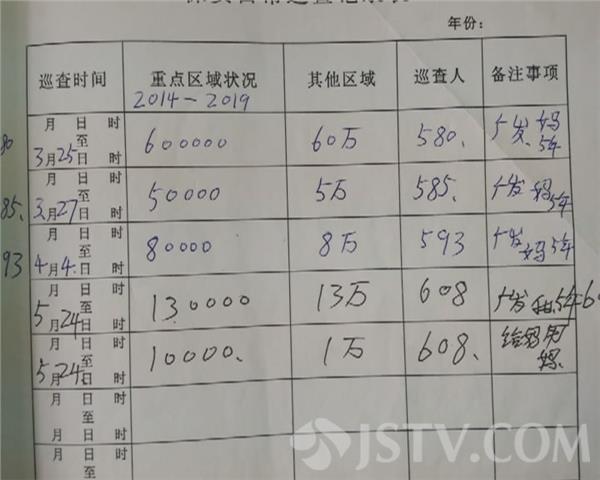 年份：
巡查时间 重点区域状况 其他区域 巡查人 备注事项
2014-2019
月 日 时
至
80 3月25日 时 600000 60万 580. 妈5年
月 日 时
至
85. 3月27日 时 50000 5万 585. 5年
月 日 时
至
93 4月4日 时 80000 8万 593 妈5年
月 日 时
至
5月24日 时 130000 13万 608 5年
月 日 时
至
5月24日 时 10000. 1万 608.
月 日 时
至
月 日 时
月 日 时
至
JSTV.COM